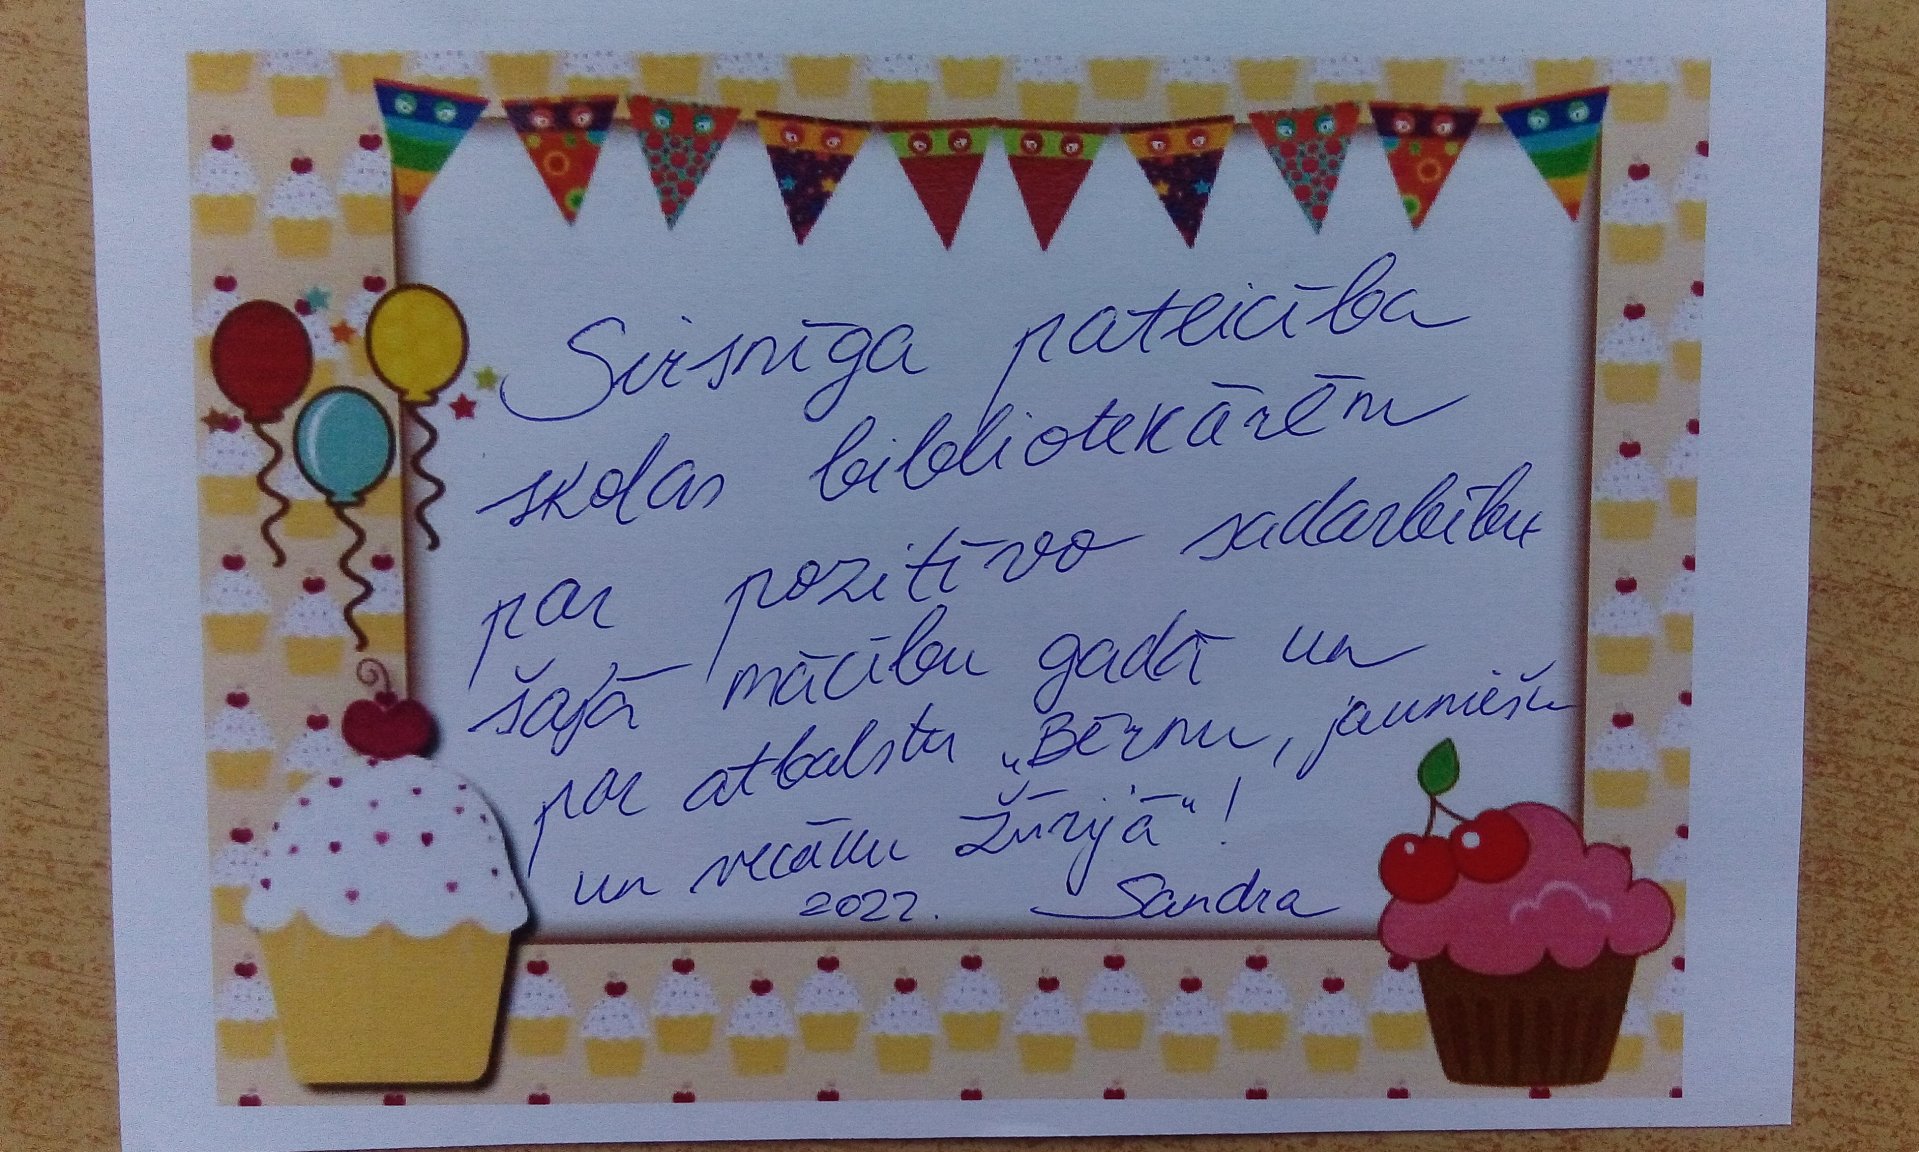 Sirsnīga pateicība
skolas bibliotekārēm
par pozitīvo sadarbību
šajā mācību gadā un
par atbalstu „Bērnu, jauniešu
un vecāku žūrijā“!
2022. Sandra